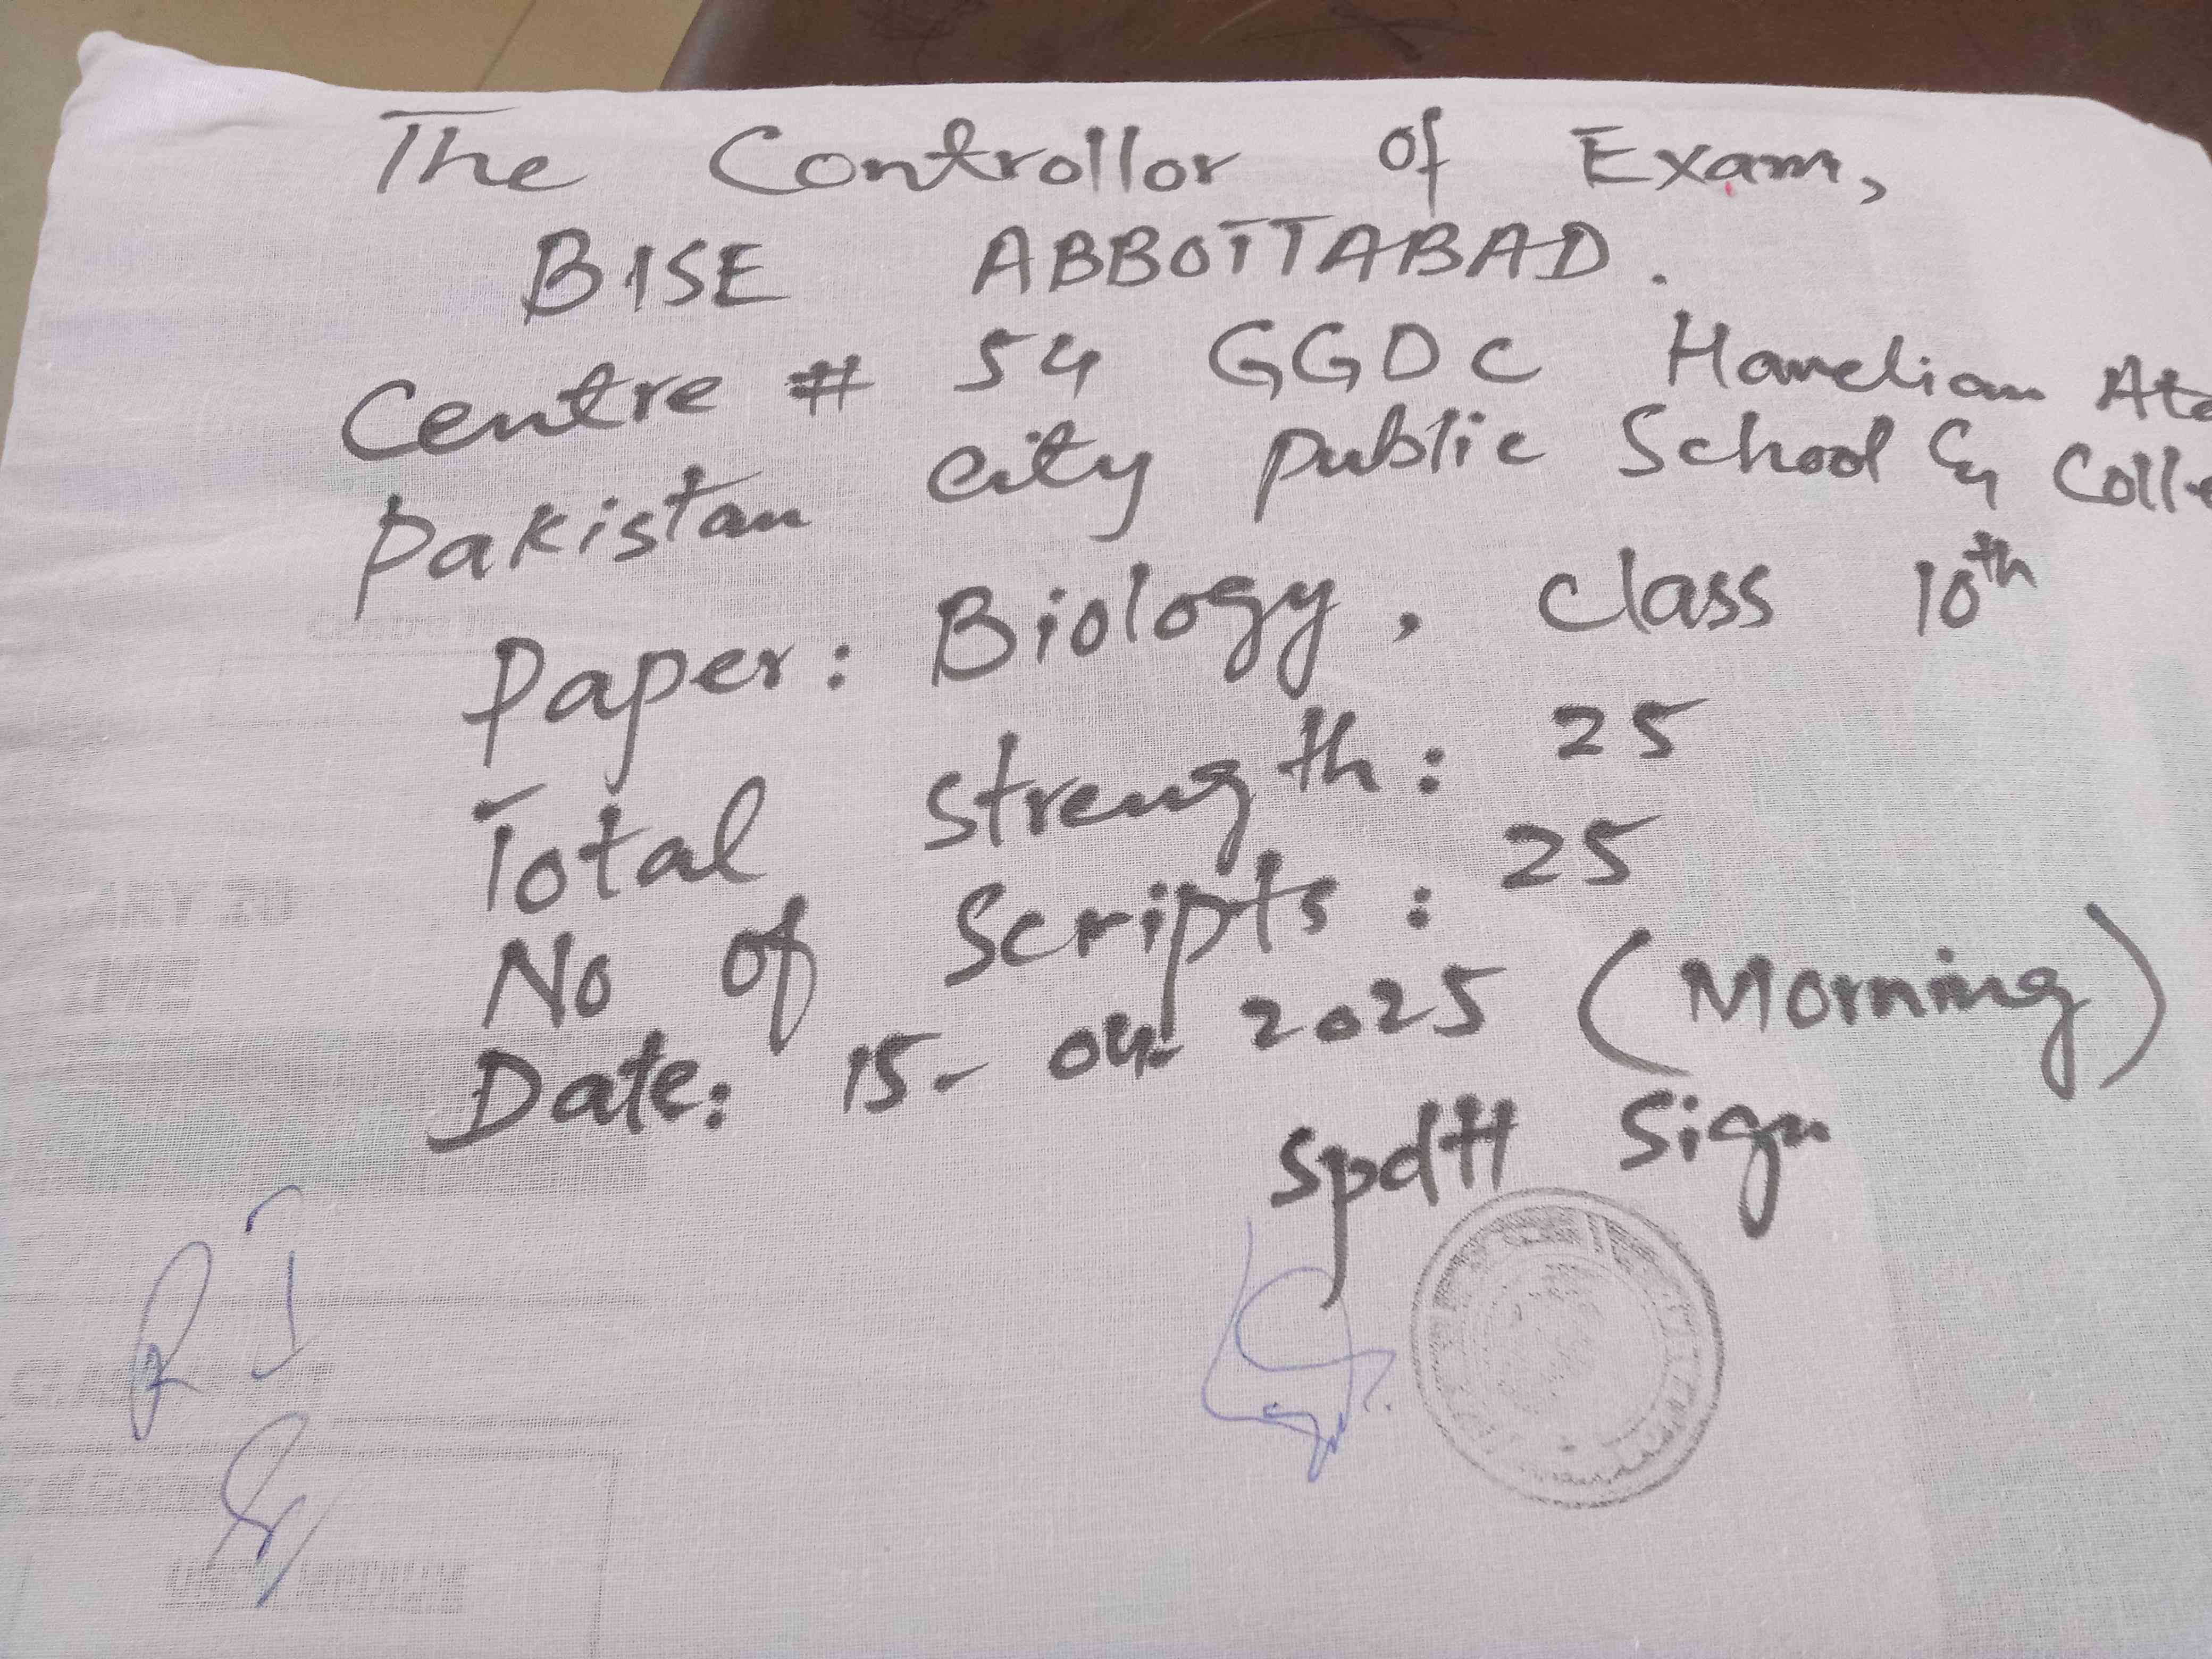 The Controllor of Exam,
BISE ABBOTTABAD.
Centre # 54 GGDC Havelian At
Pakistan city public School & Coll
Paper: Biology, class 10th
Total strength: 25
No of Scripts: 25
Date: 15-04-2025 (Morning)
spdtt Sign